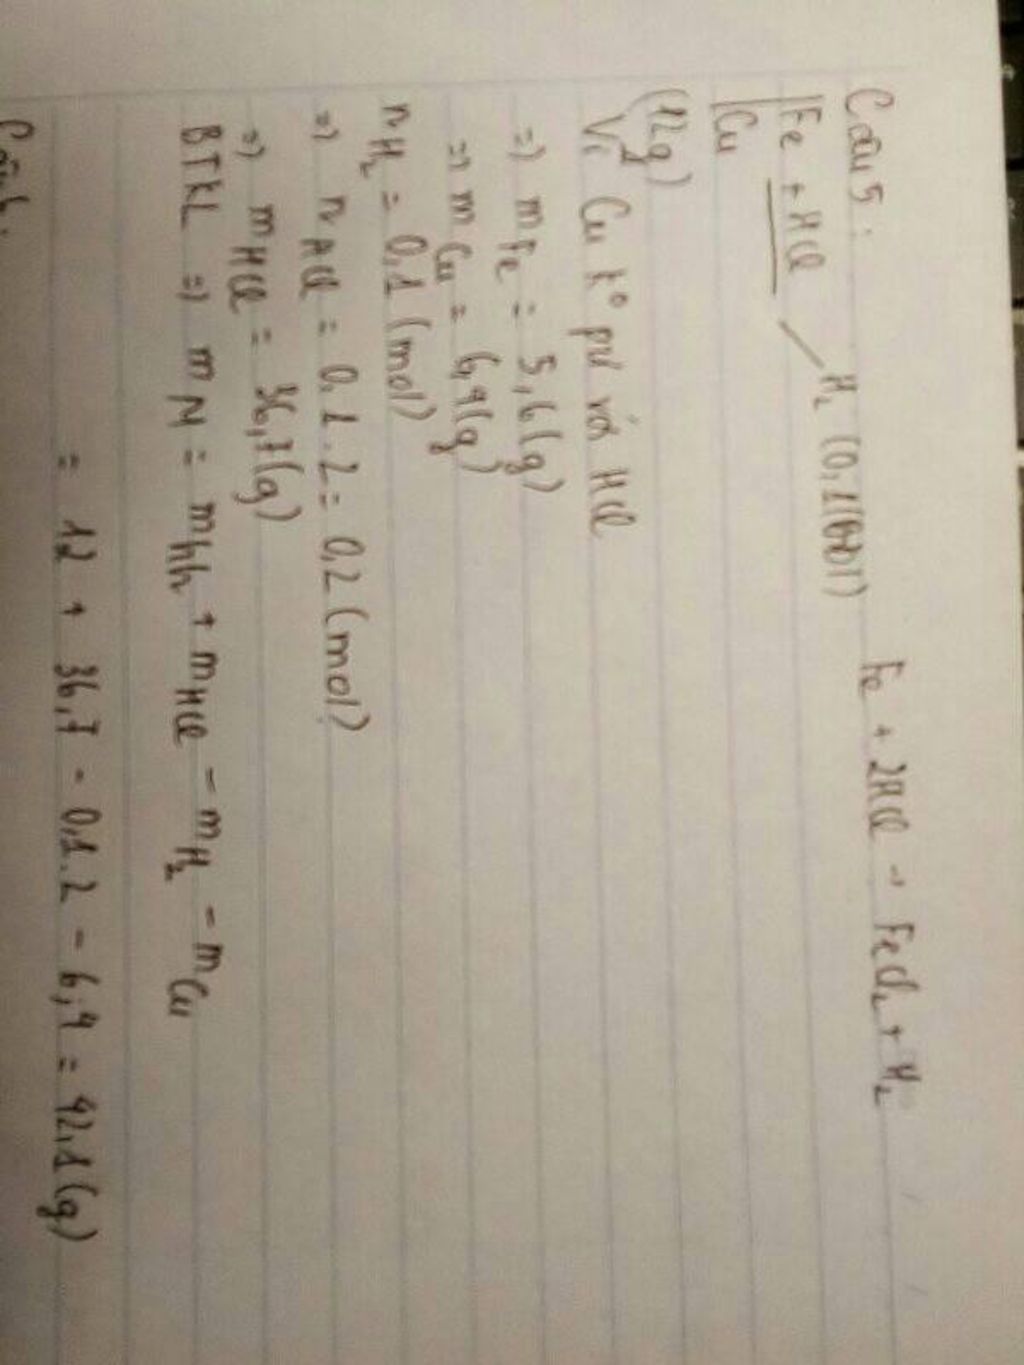 Câu 5:
Fe + HCl H₂ (0,1(mol) Fe + 2HCl → FeCl₂ + H₂
Cu
(12g)
Vì Cu k° pứ với HCl
=) mFe = 5,6(g)
=) mCu = 6,4(g)
nH₂ = 0,1 (mol)
=) nHCl = 0,1.2 = 0,2 (mol)
=) mHCl = 36,7(g)
BTKL =) mM = mhh + mHCl - mH₂ - mCu
= 12 + 36,7 - 0,1.2 - 6,4 = 42,1(g)